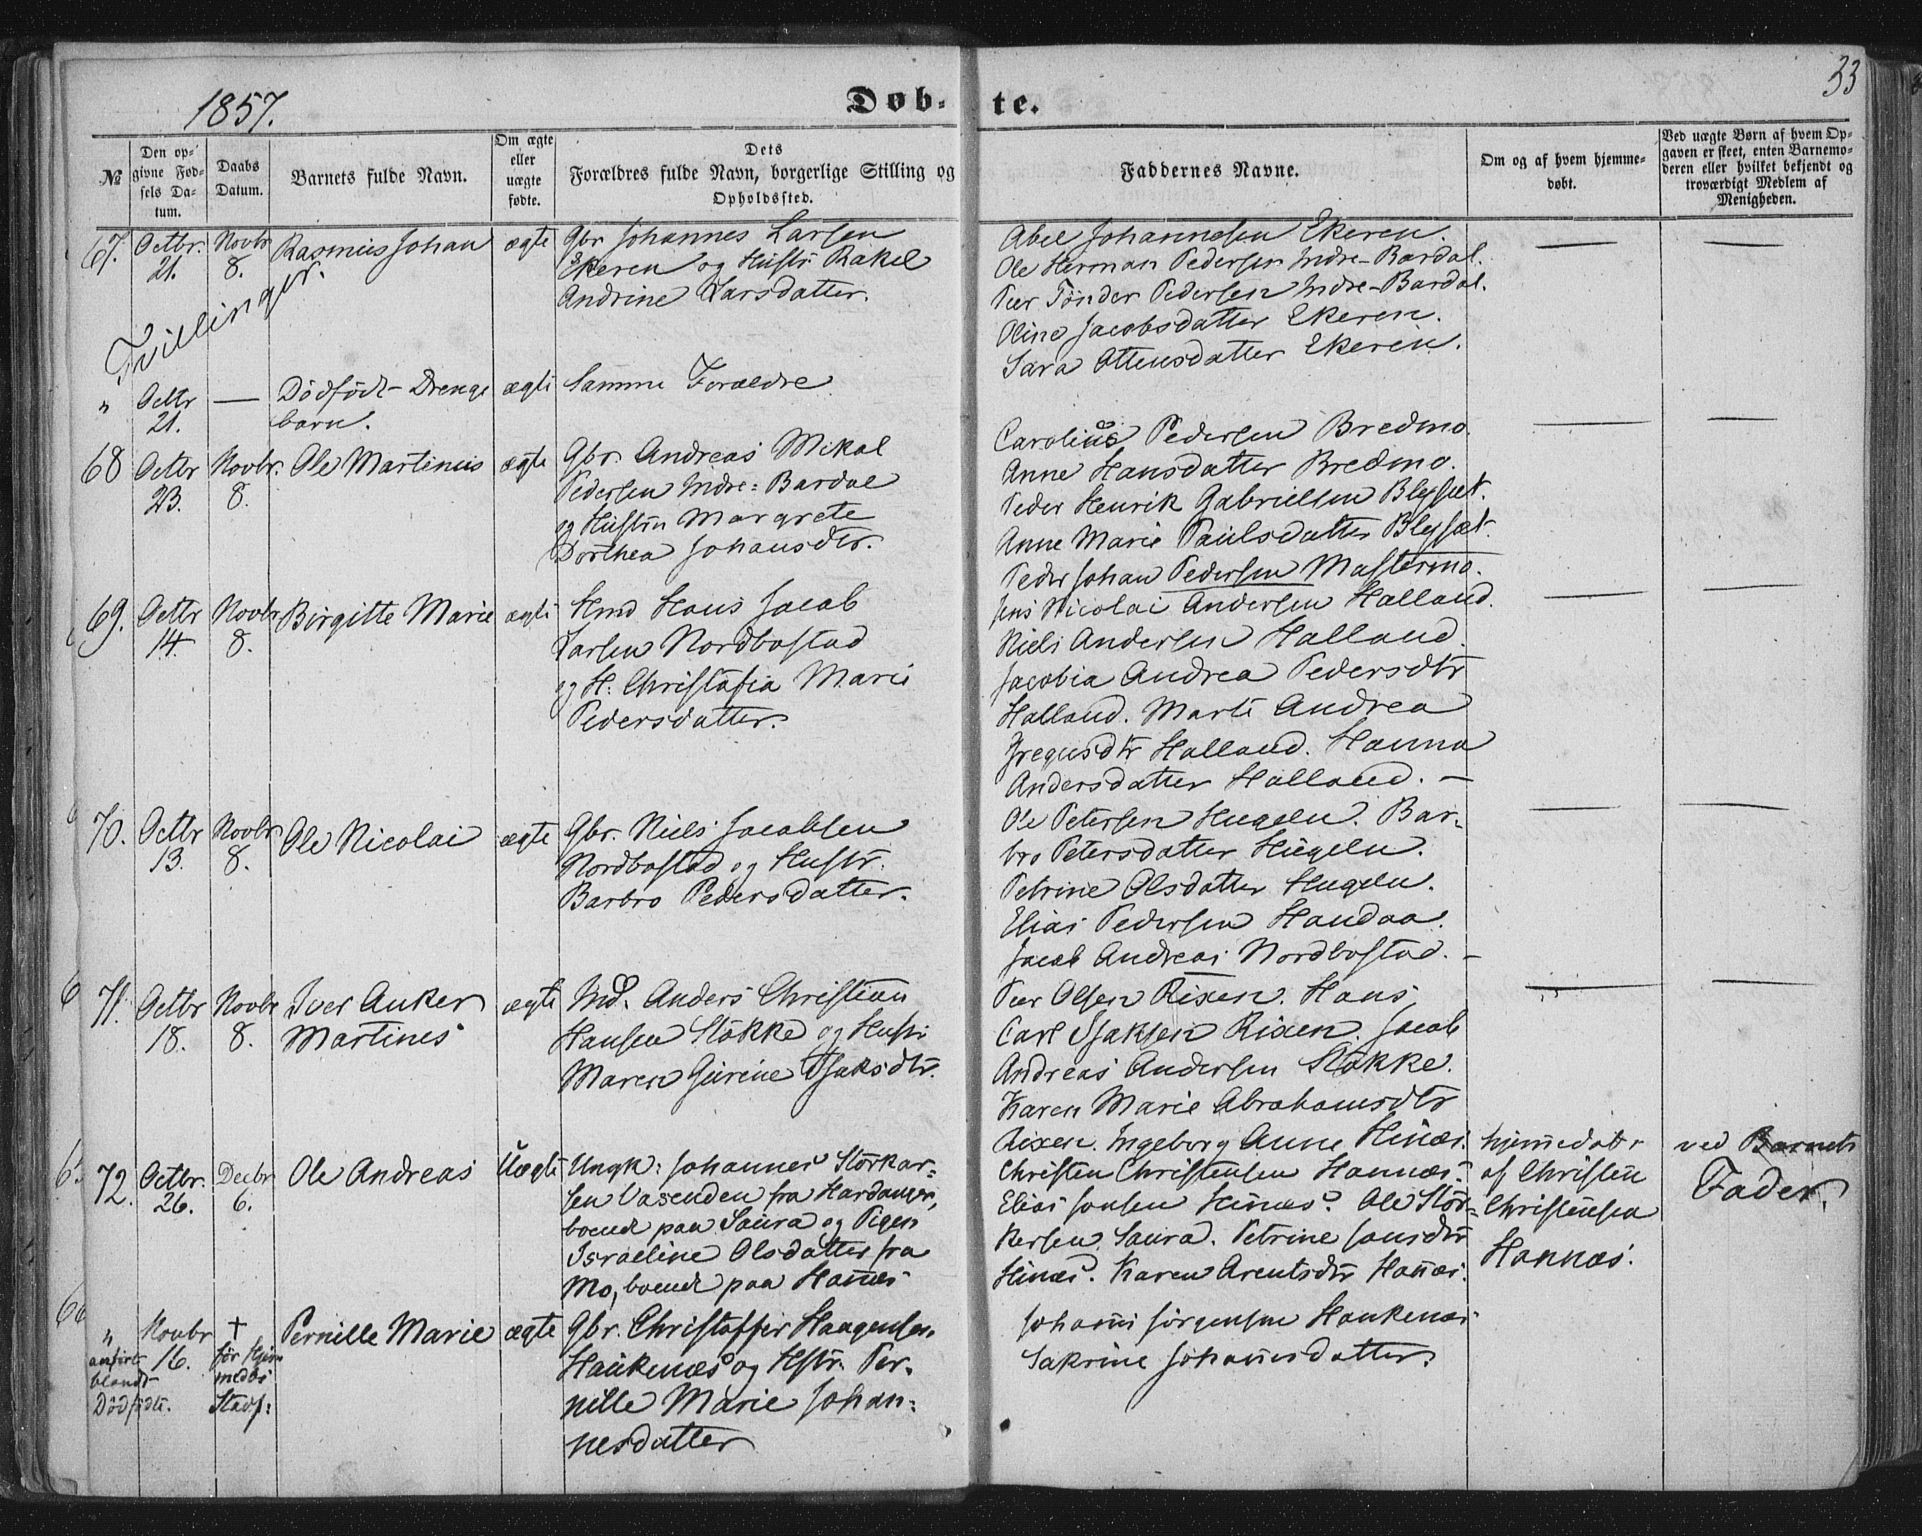 1857.
Døb-
te.
33
№
Den op-
givne Fød-
sels Da-
tum.
Daabs
Datum.
Barnets fulde Navn.
Om ægte
eller
uægte
fødte.
Dets
Forældres fulde Navn, borgerlige Stilling og
Opholdssted.
Faddernes Navne.
Om og af hvem hjemme-
døbt.
Ved uægte Børn af hvem Op-
gaven er skeet, enten Barnemo-
deren eller hvilket bekjendt og
troværdigt Medlem af
Menigheden.
67.
Octbr.
21.
Novbr
8.
Rasmus Johan
ægte
Gbr Johannes Larsen
Ekeren og Hustr: Rakel
Andrine Larsdatter.
Abel Johannesen Ekeren.
Ole Herman Pedersen Indre-Bardal.
Peer Tönder Pedersen Indre-Bardal.
Oline Jacobsdatter Ekeren.
Sara Ottensdatter Ekeren.
Tvillinger.
"
Octbr
21.
—
Dödfödt Drenge
barn.
ægte
Samme Forældre
68
Octbr
23.
Novbr.
8.
Ole Martinus
ægte
Gbr. Andreas Mikal
Pedersen Indre-Bardal
og Hustru Margrete
Dorthea Johansdtr.
Carolius Pedersen Bredmo.
Anne Hansdatter Bredmo.
Peder Henrik Gabrielsen Blejsæt.
Anne Marie Paulsdatter Blejsæt.
Peder Johan Pedersen Mastermo.
69.
Octbr
14.
Novbr
8.
Birgitte Marie
ægte
Hmd Hans Jacob
Larsen Nordbostad
og H: Christofia Marie
Pedersdatter.
Jens Nicolai Andersen Halland.
Niels Andersen Halland.
Jacobia Andrea Pedersdtr
Halland. Marte Andrea
Gregusdtr Halland. Hanna
Andersdatter Halland. —
70.
Octbr
13.
Novbr
8.
Ole Nicolai
ægte
Gbr. Niels Jacobsen
Nordbostad og Hustr.
Barbro Pedersdatter.
Ole Petersen Hugeln. Bar-
bro Petersdatter Hugeln.
Petrine Olsdatter Hugeln.
Elias Pedersen Handaa.
Jacob Andreas Nordbostad. —
71.
Octbr
18.
Novbr
8.
Iver Anker
Martines
ægte
Ind. Anders Christian
Hansen Stökke og Hustr:
Maren Gurine Isaksdtr.
Peer Olsen Rixen. Hans
Carl Isaksen Rixen. Jacob
Andreas Andersen Stökke.
Karen Marie Abrahamsdtr
Rixen. Ingeborg Anne Hinæs.
72.
Octbr.
26.
Decbr
6.
Ole Andreas
Uægte
Ungk: Johannes Storkar-
sen Vasenden fra Hardanger,
boende paa Saura og Pigen
Israeline Olsdatter fra
Mo, boende paa Hannes
Christen Christensen Hannæs.
Elias Jonsen Hinæs. Ole Stör-
kersen Saura. Petrine Jonsdtr
Hinæs. Karen Arentsdtr Hannæs.
hjemmedöbt
af Christen
Christensen
Hannæs.
ved Barnets
Fader.
"
anført
blandt
Dödfödte.
Novbr
16.
†
för Hjem
medöb
Stadf:
Pernille Marie
ægte
Gbr. Christoffer Haagensen
Haukenæs og Hstr. Per-
nille Marie Johan-
nesdatter
Johannes Jörgensen Haukenæs
Sakrine Johannesdatter.